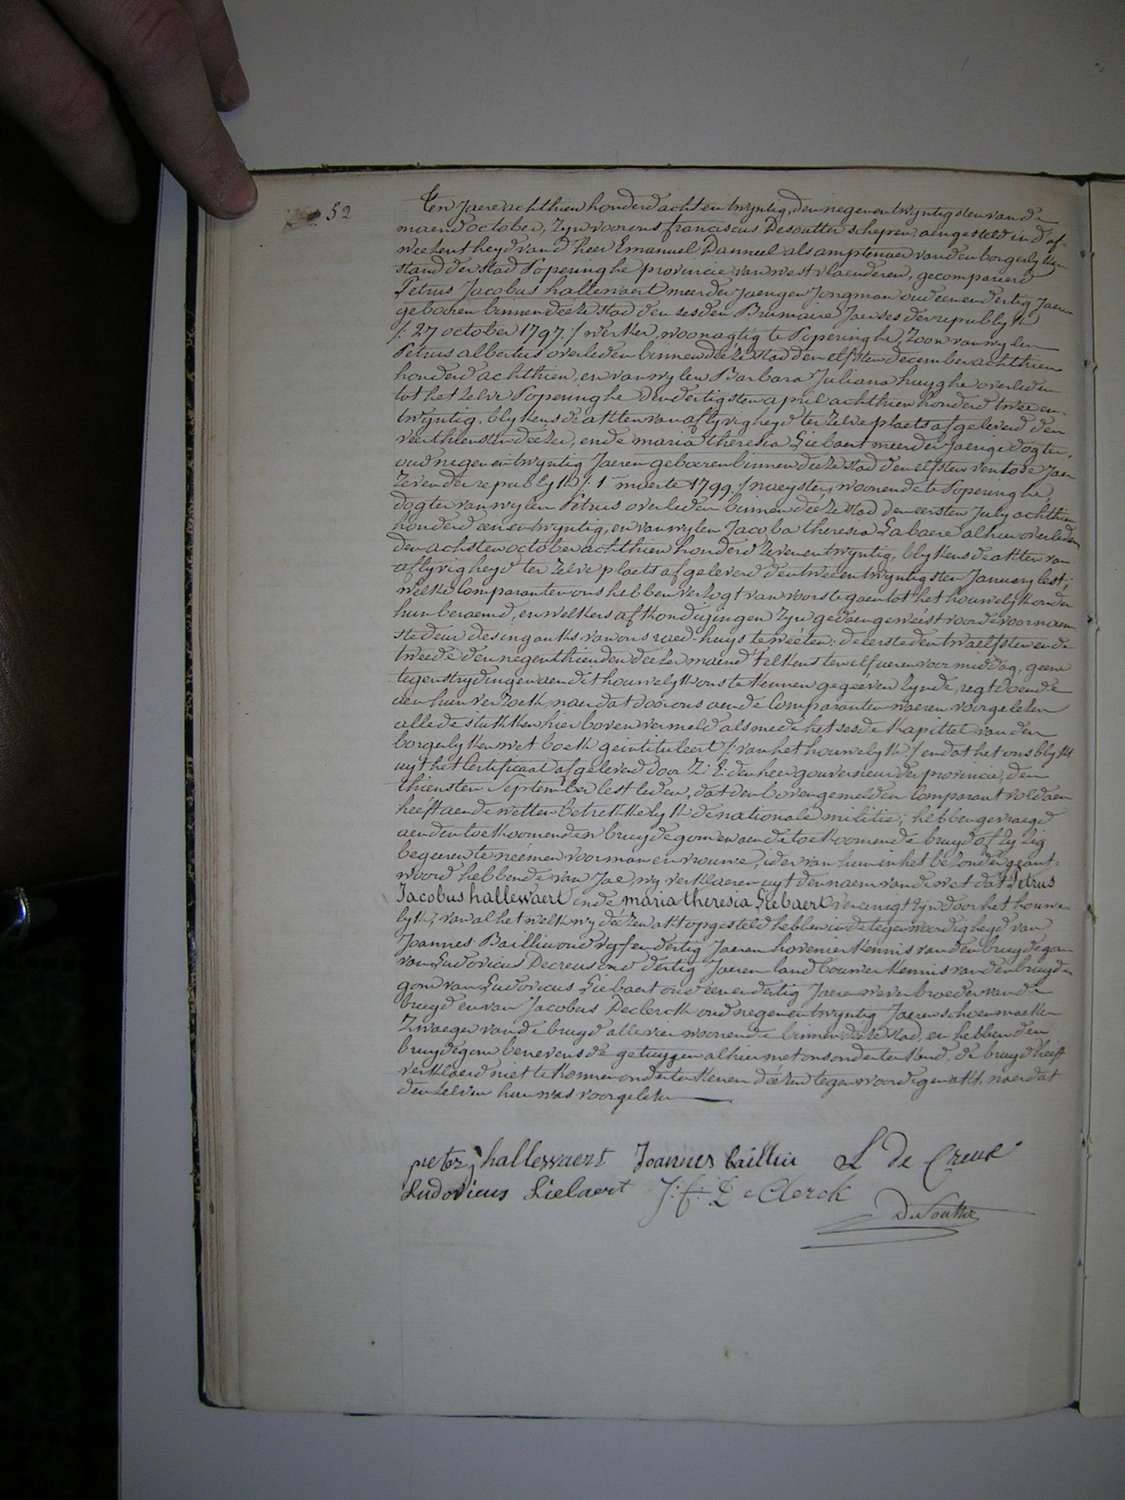 52
Ten Jaere achthien honderd acht en twyntig, den negenentwyntigsten van de
maend october, Zyn voor ons franciscus Desoutter schepen, aengesteld in d'af-
weezentheyd van d'heer Emanuel Danneel als amptenaer van den borgerlyken
stand der stad Poperinghe provincie van westvlaenderen, gecompareerd
Petrus Jacobus hallewaert meerderjaerigen Jongman oud een en dertig Jaeren
geboren binnen deeze stad den sesden Brumaire Jaer ses der republyk
/: 27 october 1797 :/ werker, woonagtig te Poperinghe, Zoon van wylen
Petrus albertus overleden binnen deeze stad den elfsten december achthien
honderd achthien, en van wylen Barbara Juliana huyghe overleden
tot het zelve Poperinghe den dertigsten april achthien honderd twee en
twyntig, blykens de akten van aflyvigheyd ter zelve plaets afgeleverd den
veerthiensten deezer, ende maria theresia Liebaert meerderjaerige dogter,
oud negenentwyntig Jaeren geboren binnen deeze stad den elfsten ventose Jaer
zeven der republyk /: 1 maerte 1799 :/ naeyster, woonende te Poperinghe,
dogter van wylen Petrus overleden binnen deeze stad den eersten July achthien
honderd een en twyntig, en van wylen Jacoba theresia Labaere alhier overleden
den achsten october achthien honderd zevenentwyntig, blykens de akten van
aflyvigheyd ter zelve plaets afgeleverd den tweeentwyntigsten January lest;
welke comparanten ons hebben verzogt van voorts te gaen tot het houwelyk onder
hun beraemd, en welkers afkondigingen Zyn gedaen geweest voor de voornaem-
ste deur des ingankx van ons raed-huys te weeten: de eerste den twaelfsten en de
tweede den negenthienden deezer maend telkens ten elf ueren voormiddag, geene
tegenstrydingen aen dit houwelyk ons te kennen gegeeven zynde, regt doende
aen hun verzoek, naer dat door ons aen de comparanten waeren voorgelezen
alle de stukken hier boven vermeld als mede het sesde kapittel van den
borgerlyken wet boek geintituleert /: van het houwelyk :/ en dat het ons blykt
uyt het certificaet afgeleverd door Z: E: den heer gouverneur der provincie, den
thiensten September lestleden, dat den bovengemelden comparant voldaen
heeft aen de wetten betrekkelyk de nationale militie; hebben gevraegd
aen den toekoomenden bruydegom en aen de toekoomende bruyd of zy zig
begeeren te neemen voor man en vrouwe, ider van hun in het bezonder geant-
woord hebbende van Jae, wy verklaeren uyt den naem van de wet dat Petrus
Jacobus hallewaert ende maria theresia Liebaert vereenigt zyn door het houwe-
lyk; van al het welk wy deezen akt opgesteld hebben in de tegenwoordigheyd van
Joannes Bailliu oud vyf en dertig Jaeren hovenier kennis van den bruydegom
van Ludovicus Decreus oud dertig Jaeren landbouwer kennis van den bruyde-
gom van Ludovicus Liebaert oud een en dertig Jaeren wever broeder van de
bruyd en van Jacobus Declerck oud negenentwyntig Jaeren schoenmaeker
Zwaeger van de bruyd alle vier woonende binnen deeze stad, en hebben den
bruydegom benevens de getuygen alhier met ons onderteekend, de bruyd heeft
verklaerd niet te konnen onderteekenen deezen tegenwoordigen akt, naer dat
den zelven hun was voorgelezen
pieter j hallewaert Joannes bailliu L de Creus
Ludovicus Liebaert J: f: De Clerck
DeSoutter